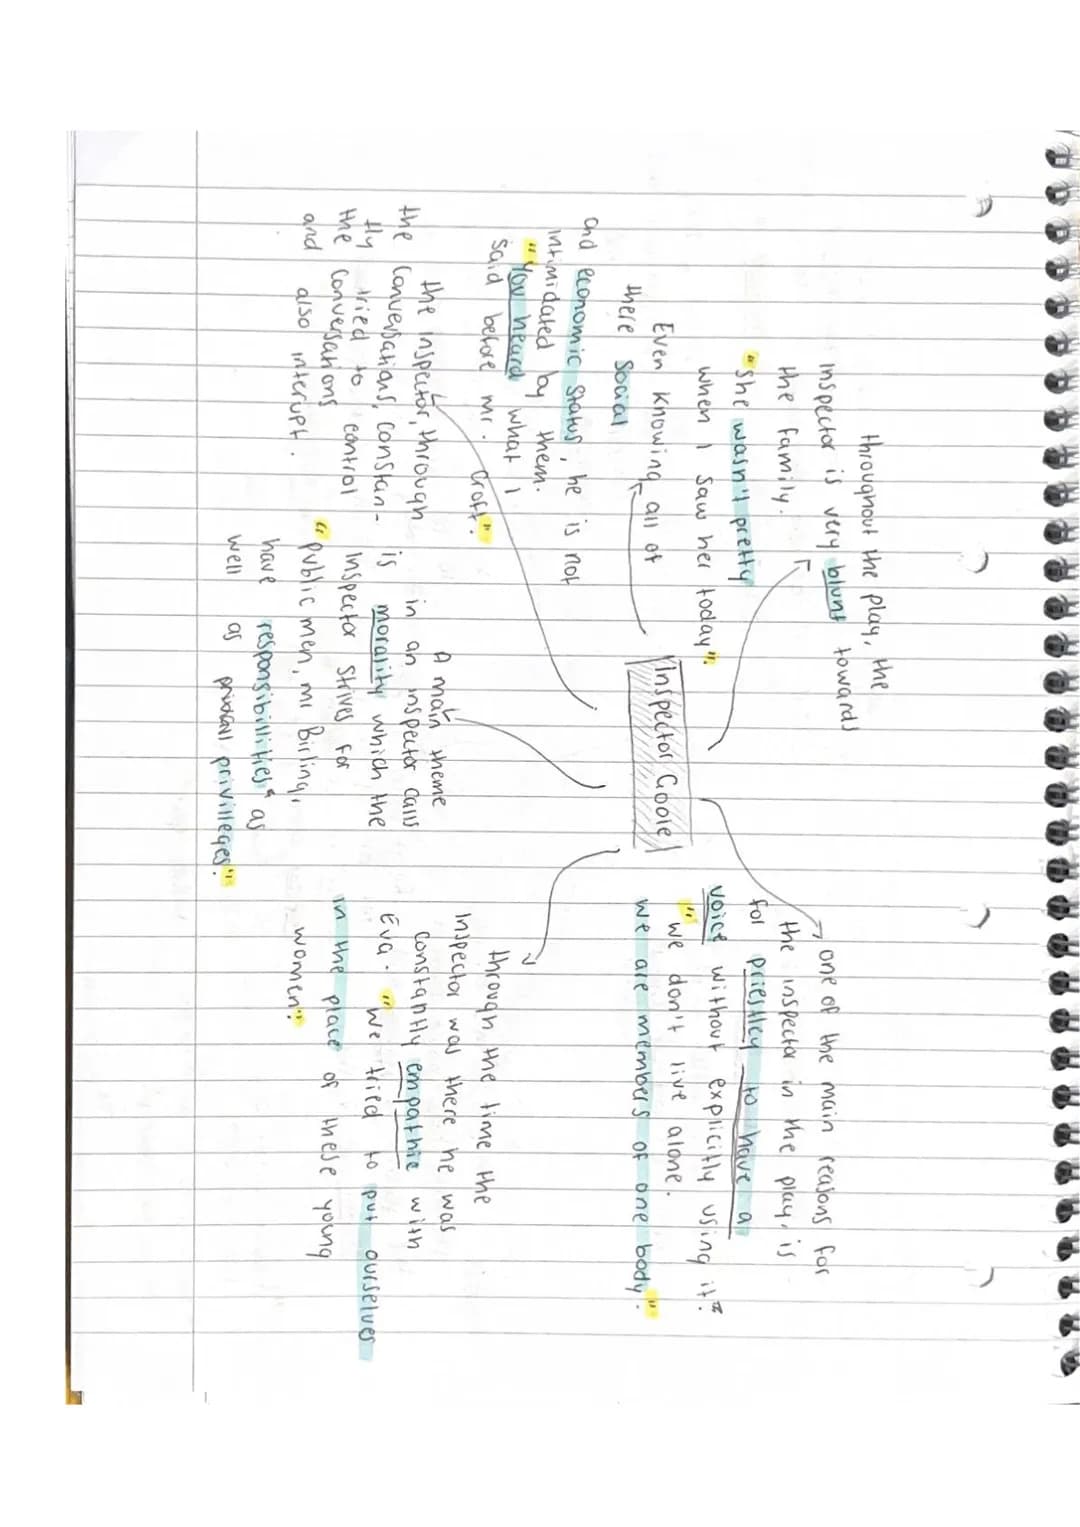 Inspector Goole
throughout the play, the
inspector is very blunt towards
the family.
"she wasn't pretty
when I saw her today".
Even knowing all of
there social
and economic status, he is not
intimidated by them.
"You heard what I
said before Mr. Croft."
the inspector, through
the conversations, constan-
tly tried to control
the conversations
and also interupt.
A main theme
in an inspector calls
is morality which the
Inspector strives for
"public men, mr Birling,
have responsibillities as
well as privilleges".
one of the main reasons for
the inspector in the play, is
for priestley to have a
voice without explicitly using it.
"we don't live alone.
we are members of one body".
through the time the
Inspector was there he was
constantly empathie with
Eva. "We tried to put ourselves
in the place of these young
women".